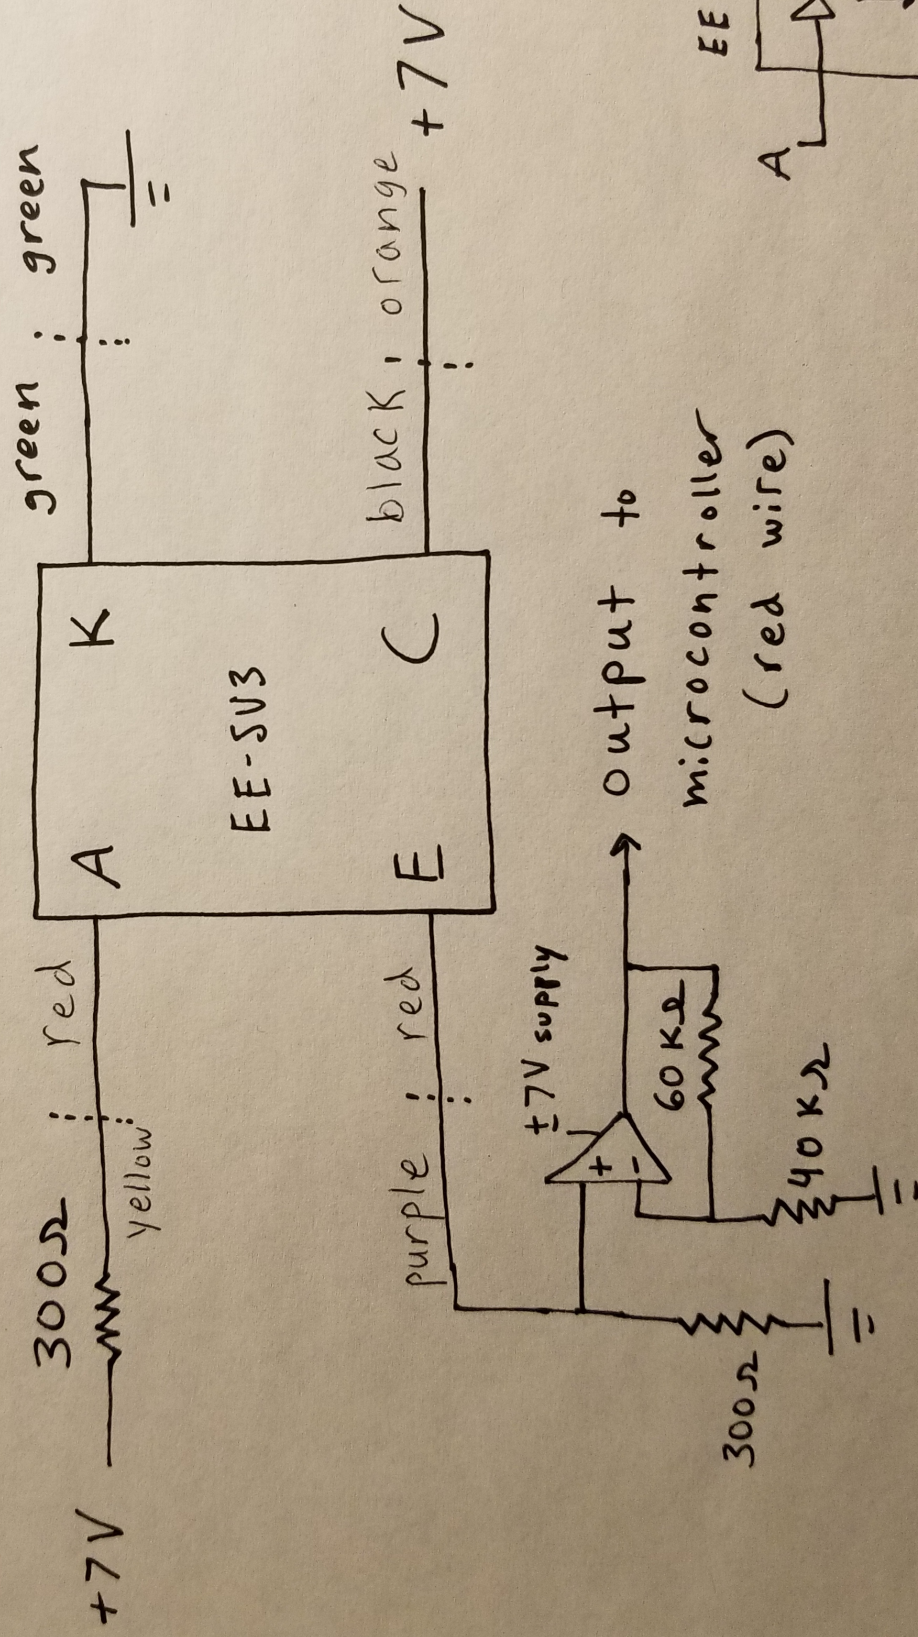 +7V
300Ω
yellow
red
green
green
A
K
EE-SV3
E
C
purple
red
black
orange
+7V
±7V supply
+
-
60KΩ
40KΩ
300Ω
output to
microcontroller
(red wire)
A
EE